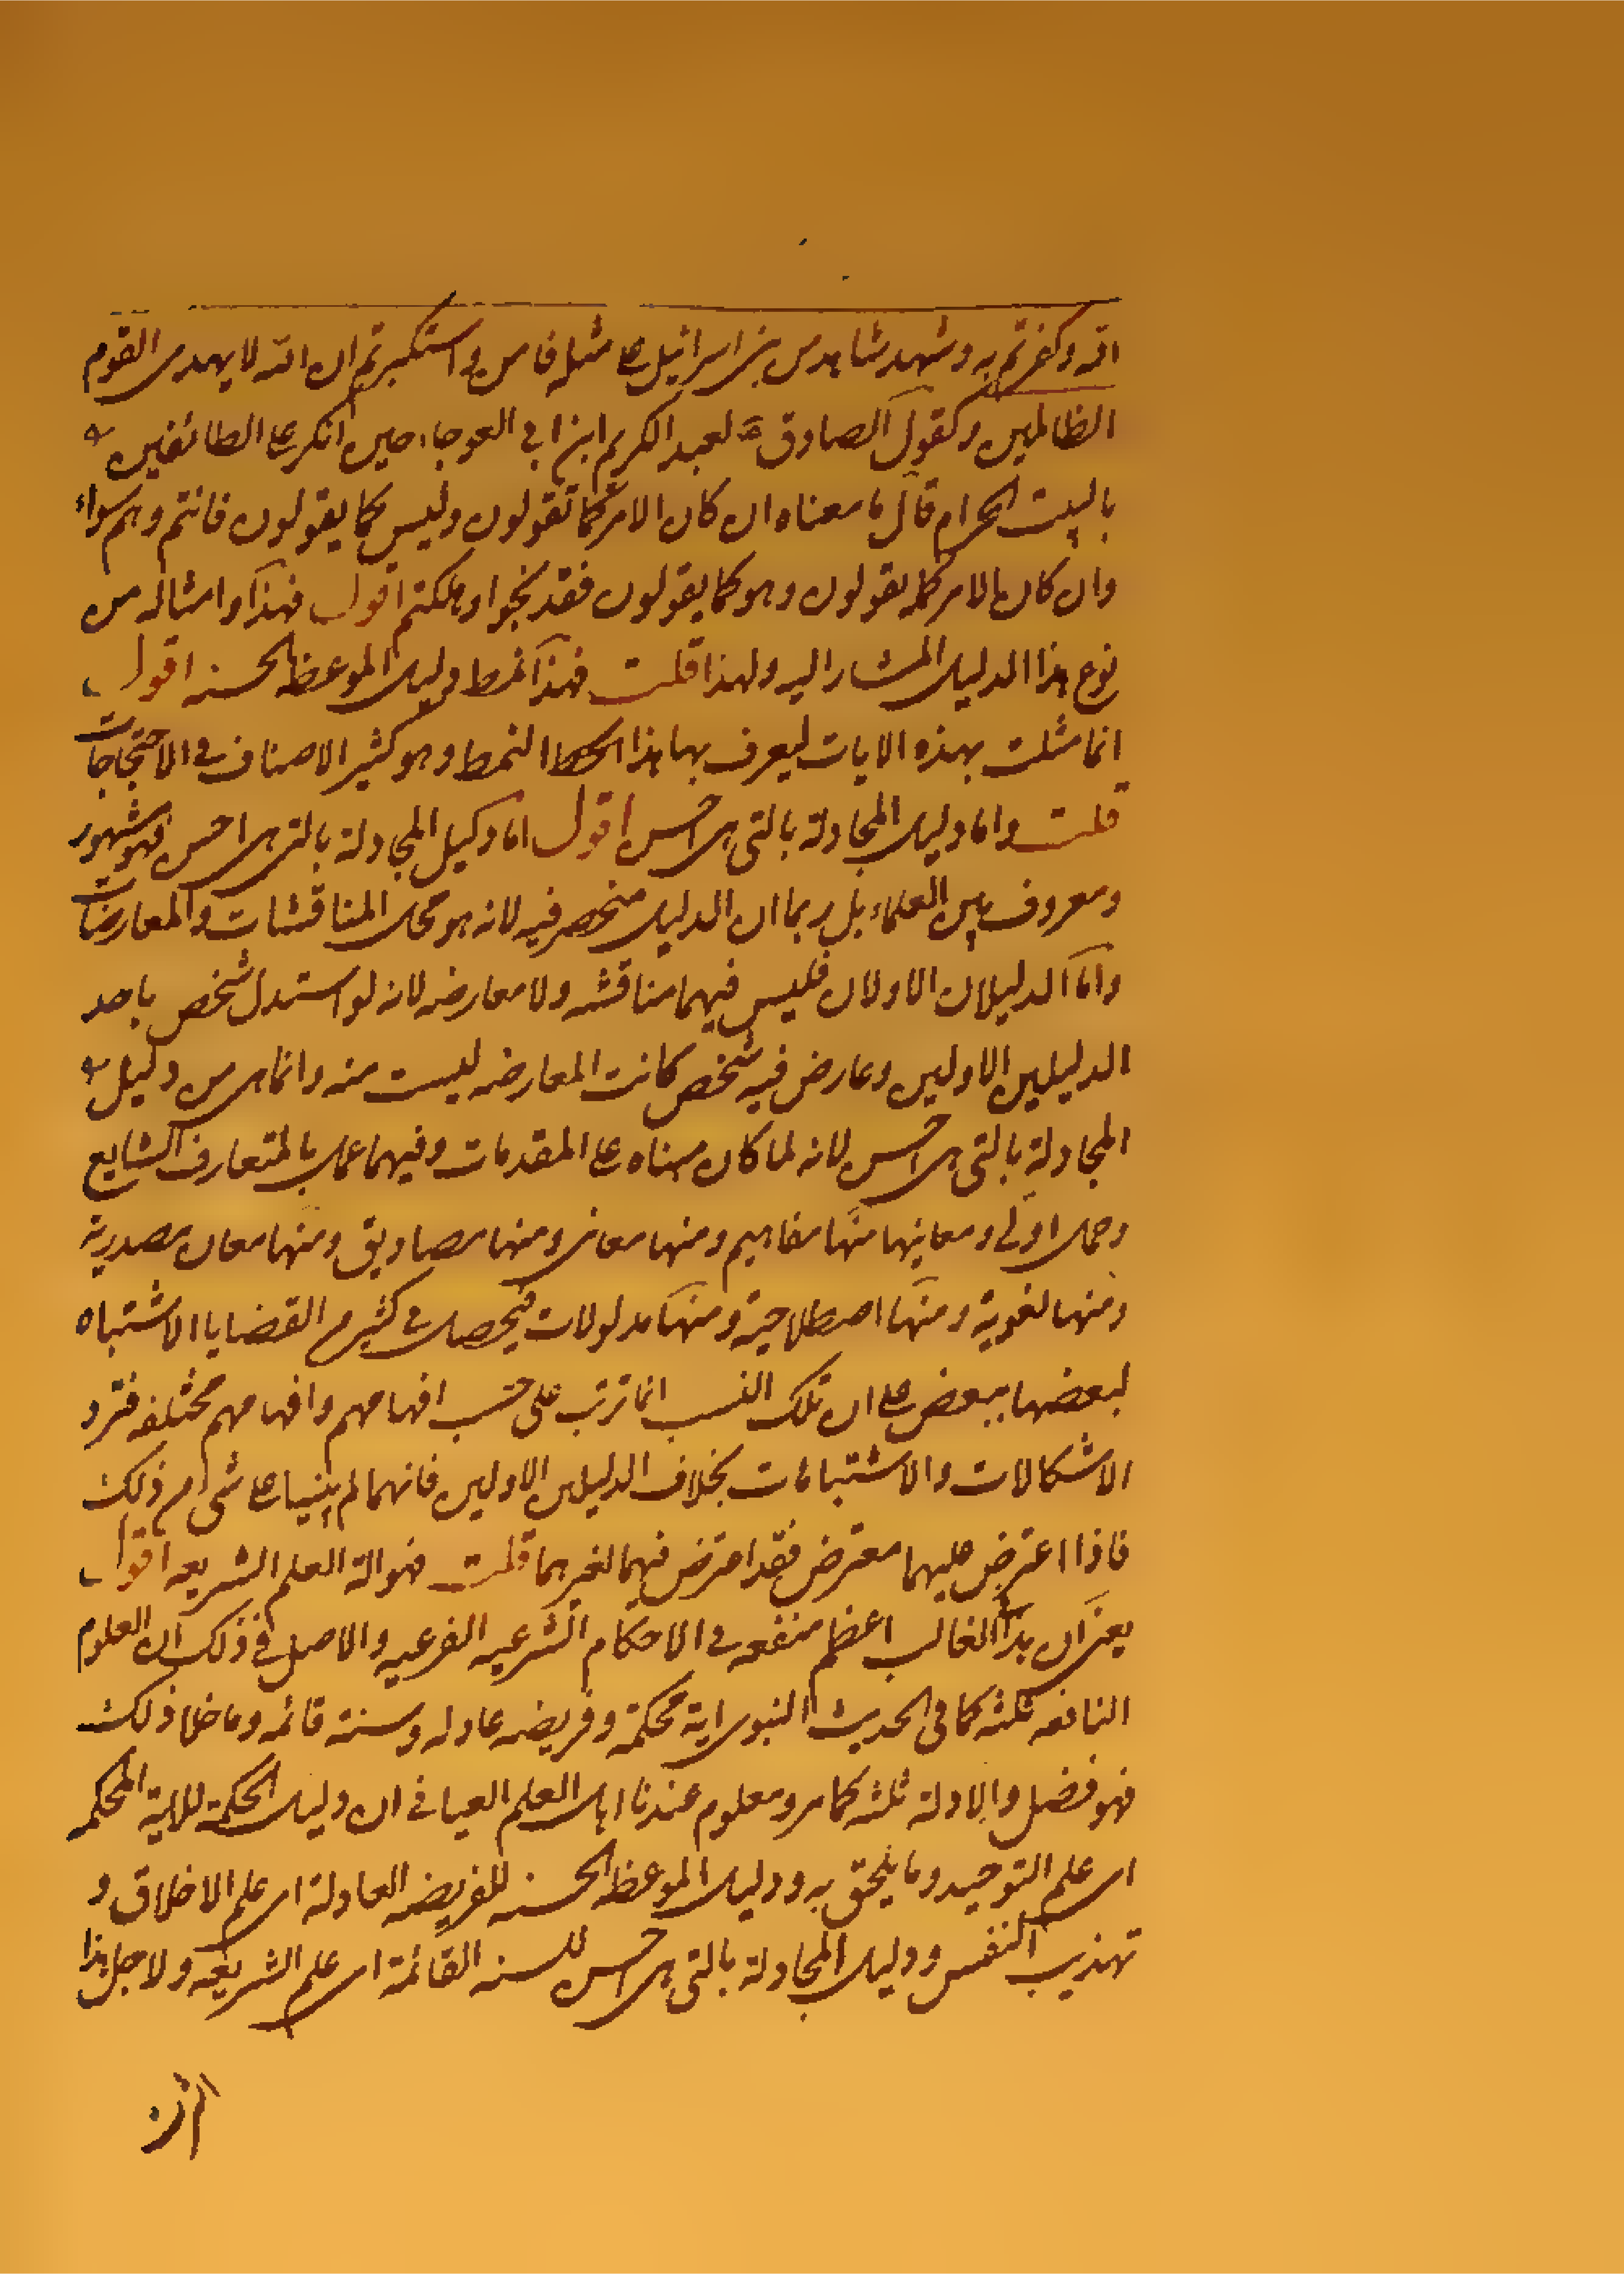 الله وكفرتم به وشهد شاهد من بنى اسرائيل على مثله فامن واستكبرتم ان الله لا يهدى القوم
الظالمين وكقول الصادق ع لعبد الكريم ابن ابى العوجاء حين انكر على الطائفين
بالبيت الحرام قال ما معناه ان كان الامر كما تقولون وليس كما يقولون فانتم وهم سواء
وان كان الامر كما يقولون وهو كما يقولون فقد نجوا وهلكتم اقول فهذا وامثاله من
نوع هذا الدليل المشار اليه ولهذا قلت فهذا نمط دليل الموعظة الحسنه اقول
انما مثلت بهذه الايات ليعرف بها هذا النمط وهو كثير الاصناف فى الاحتجاجات
قلت واما دليل المجادلة بالتى هى احسن اقول اما دليل المجادلة بالتى هى احسن فهو مشهور
ومعروف بين العلماء بل ربما ان الدليل منحصر فيه لانه هو محل المناقشات والمعارضات
واما الدليلان الاولان فليس فيهما مناقشه ولا معارضه لانه لو استدل شخص باحد
الدليلين الاولين وعارض فيه شخص كانت المعارضه ليست منه وانما هى من دليل
المجادلة بالتى هى احسن لانه لما كان مبناه على المقدمات وفيهما عمل بالمتعارف الشايع
وحمل اولى ومعانيها منها مفاهيم ومنها معانى ومنها مصاديق ومنها معان مصدرية
ومنها لغوية ومنها اصطلاحية ومنها مدلولات فيحصل فى كثير من القضايا الاشتباه
لبعضها ببعض على ان تلك النسب انما ترتب على حسب افهامهم وافهامهم مختلفه فترد
الاشكالات والاشتباهات بخلاف الدليلين الاولين فانهما لم يبنيا على شىء من ذلك
فاذا اعترض عليهما معترض فقد اعترض فيهما لغيرهما قلت فهو الة العلم الشريعه اقول
يعنى ان هذا الغالب اعظم منفعه فى الاحكام الشرعيه الفرعيه والاصل فى ذلك ان العلوم
النافعه ثلثه كما فى الحديث النبوى اية محكمة وفريضه عادله وسنة قائمه وما خلا ذلك
فهو فضل والادلة ثلثه كما مر ومعلوم عندنا اهل العلم العيانى ان دليل الحكمة للاية المحكمه
اى علم التوحيد وما يلحق به ودليل الموعظه الحسنه للفريضه العادلة اى علم الاخلاق و
تهذيب النفس ودليل المجادلة بالتى هى احسن للسنه القائمة اى علم الشريعه ولاجل هذا